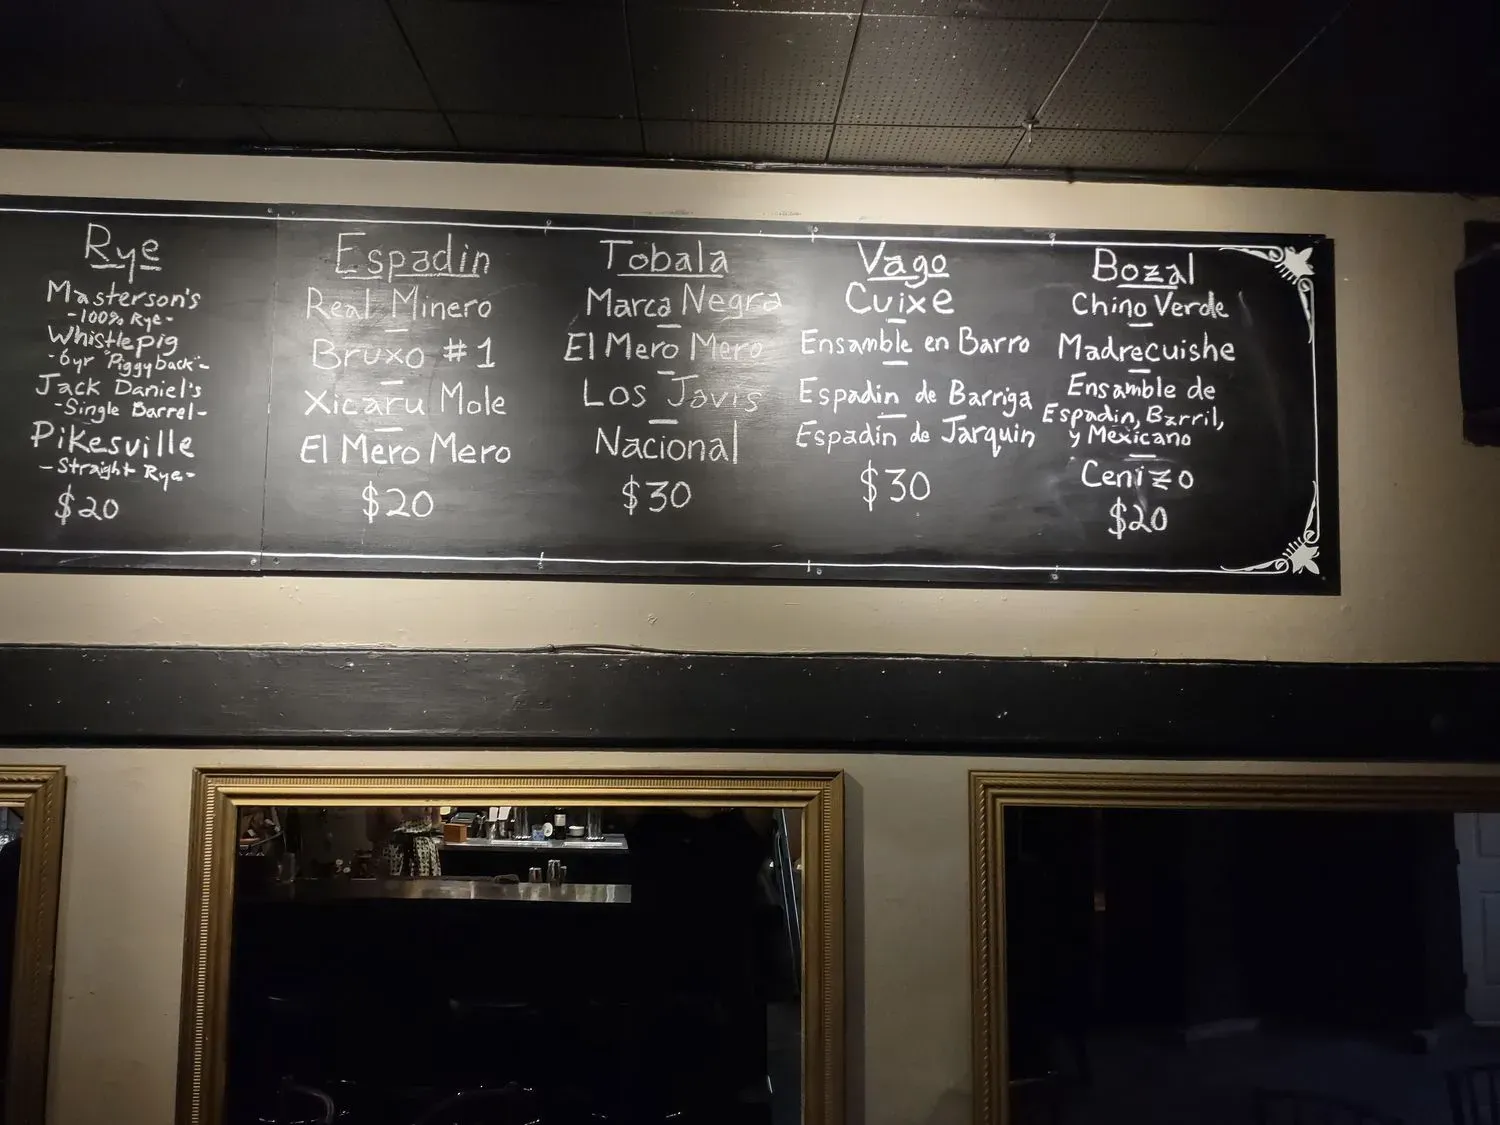 Rye
Masterson's
-100% Rye-
Whistlepig
-6yr "Piggyback"-
Jack Daniel's
-Single Barrel-
Pikesville
-Straight Rye-
$20
Espadin
Real Minero
Bruxo #1
Xicaru Mole
El Mero Mero
$20
Tobala
Marca Negra
El Mero Mero
Los Javis
Nacional
$30
Vago
Cuixe
Ensamble en Barro
Espadin de Barriga
Espadin de Jarquin
$30
Bozal
Chino Verde
Madrecuishe
Ensamble de
Espadin, Barril,
y Mexicano
Cenizo
$20